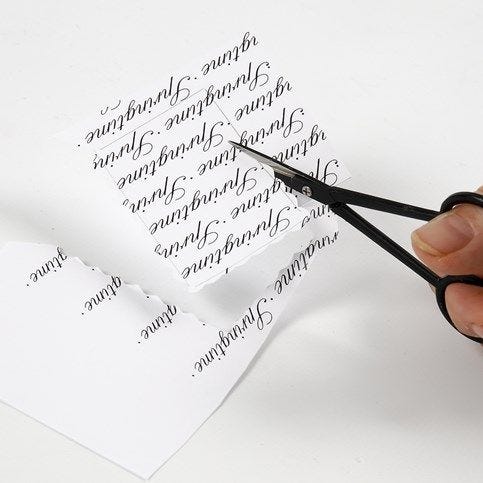 ngtime
Springtime · S
Springtime · Sp
Springtime · Spring
Springtime · Springtime
Springtime ·
Springtime
Springtime
time ·
gtime ·
time ·
time · Springtime